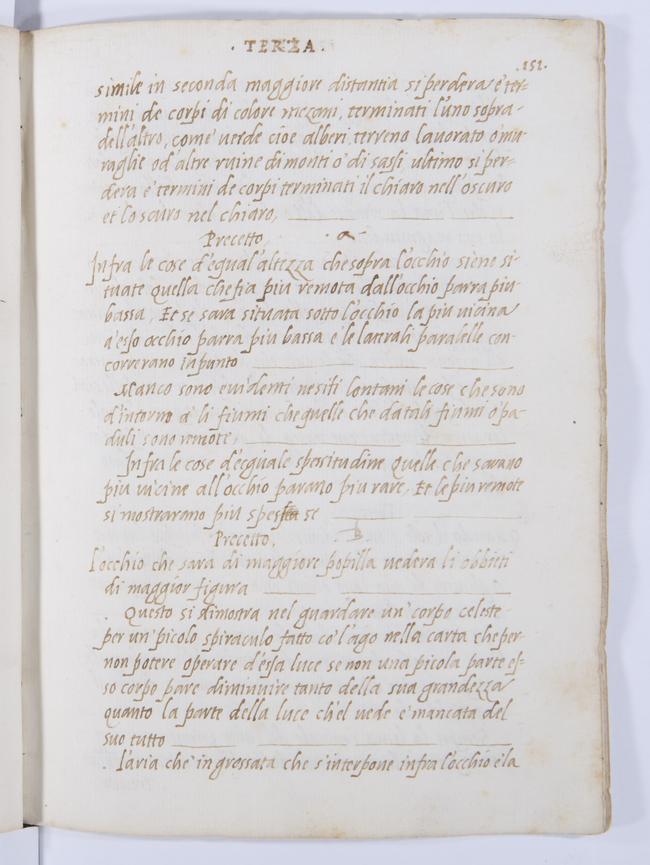 · TERZA ·
.152.
simile in seconda maggiore distantia si perdera e ter=
mini de corpi di colore mezani, terminati l'uno sopra-
dell'altro, come verde cioe alberi, terreno lavorato o mu-
raglie od'altre ruine di monti o di sassi ultimo si per=
dera e termini de corpi terminati il chiaro nell'oscuro
et lo scuro nel chiaro,
Precetto,
Infra le cose d'egual'altezza che sopra l'occhio siene si-
tuate quella che fia piu remota dall'occhio parra piu-
bassa, Et se sara situata sotto l'occhio la piu vicina
a'esso occhio parra piu bassa e le laterali paralelle con-
correrano in punto
Manco sono evidenti ne siti lontani le cose che sono
d'intorno a li fiumi che quelle che da tali fiumi o pa-
duli sono remote,
Infra le cose d'eguale spessitudine quelle che sarano
piu vicine all'occhio parano piu rare, Et le piu remote
si mostrarano piu spesse
Precetto, B
L'occhio che sara di maggiore popilla vedera li obbieti
di maggior figura
Questo si dimostra nel guardare un'corpo celeste
per un'picolo spiraculo fatto co'l ago nella carta che per-
non potere operare d'essa luce se non una picola parte es-
so corpo pare diminuire tanto della sua grandezza
quanto la parte della luce ch'el vede e mancata del
suo tutto
L'aria che in grossata che s'interpone infra l'occhio e la